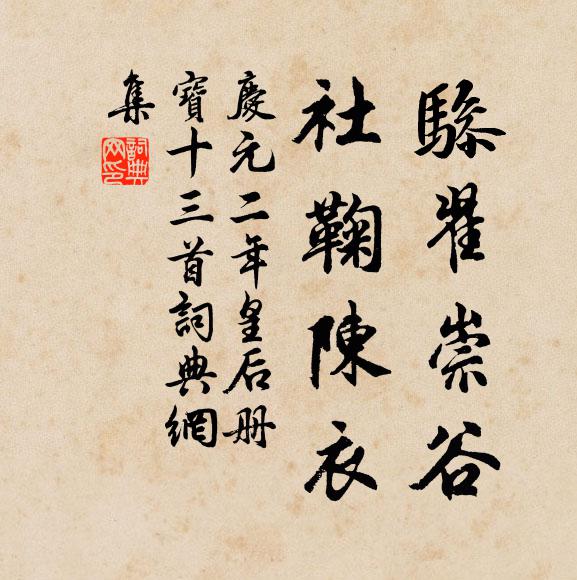 驂翟崇谷
社鞠陳衣
慶元二年皇后册
寶十三首詞典網
集
詞典網印